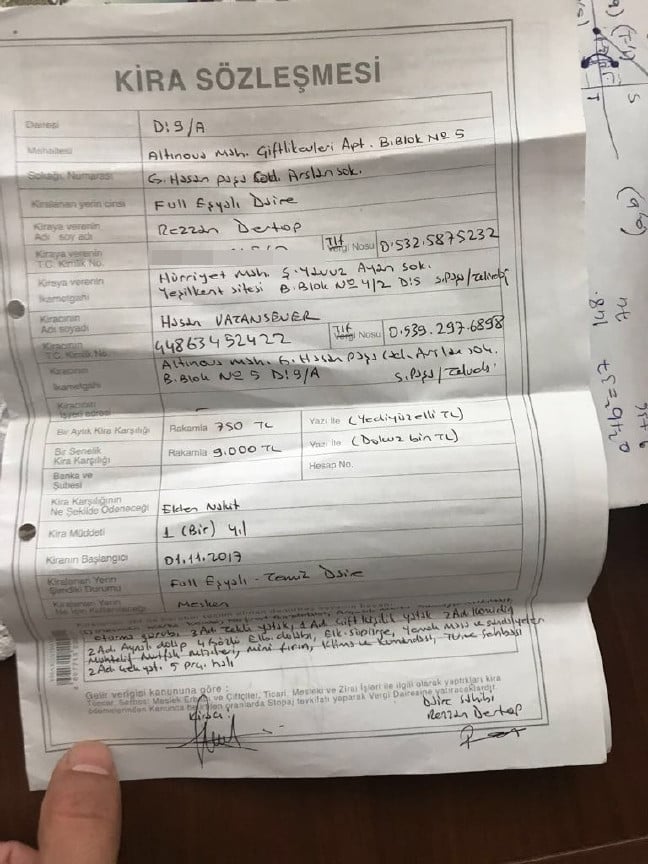 KİRA SÖZLEŞMESİ
Dairesi D:9/A
Mahallesi Altınova Mah. Çiftlikevleri Apt. B.Blok No 5
Sokağı, Numarası G.Hasan paşa Cad. Arslan sok.
Kiralanan yerin cinsi Full Eşyalı Daire
Kiraya verenin Adı soy adı Rezzan Dertop
Kiraya verenin T.C. Kimlik No. Tlf Vergi Nosu 0.532.5875232
Kiraya verenin İkametgahı Hürriyet Mah. Ş.Yavuz Ayan sok.
Yeşilkent sitesi B.Blok No 4/2 D:5 S.Paşa/
Kiracının Adı soyadı Hasan VATANSEVER
Kiracının T.C. Kimlik No. 44863452422 Tlf Vergi Nosu 0.539.297.6898
Kiracının İkametgahı Altınova mah. G.Hasan paşa Cad. Arslan sok.
B.Blok No 5 D:9/A S.Paşa/
Kiracının adresi
Bir Aylık Kira Karşılığı Rakamla 750 TL Yazı ile (Yediyüzelli TL)
Bir Senelik Kira Karşılığı Rakamla 9.000 TL Yazı ile (Dokuz bin TL)
Banka ve Şubesi Hesap No.
Kira Karşılığının Ne Şekilde Ödeneceği Elden Nakit
Kira Müddeti 1 (Bir) yıl
Kiranın Başlangıcı 01.11.2017
Kiralanan Yerin Şimdiki Durumu Full Eşyalı - Temiz Daire
Kiralanan Yerin Ne için Kullanılacağı Mesken
oturma gurubu, 3 Ad. Tekli yatak, 1 Ad Çift kişilik yatak 2 Ad Komidin
2 Ad Aynalı dolap 4 Gözlü Elb.dolabı, Elk. süpürge, Yemek masa ve sandalyeler
Muhtelif Mutfak malzemeleri, mini fırın, Klima ve kumandası, TV ve sehbası
2 Ad çekyat. 5 prç. halı
Gelir vergisi kanununa göre :
Tüccar, Serbest Meslek Erbabı ve Çiftçiler, Ticari, Mesleki ve Zirai İşleri ile ilgili olarak yaptıkları kira
ödemelerinden Kanunda oranlarda Stopaj tevkifatı yaparak Vergi Dairesine yatıracaklardır.
Kiracı: Daire Sahibi
Rezzan Dertop